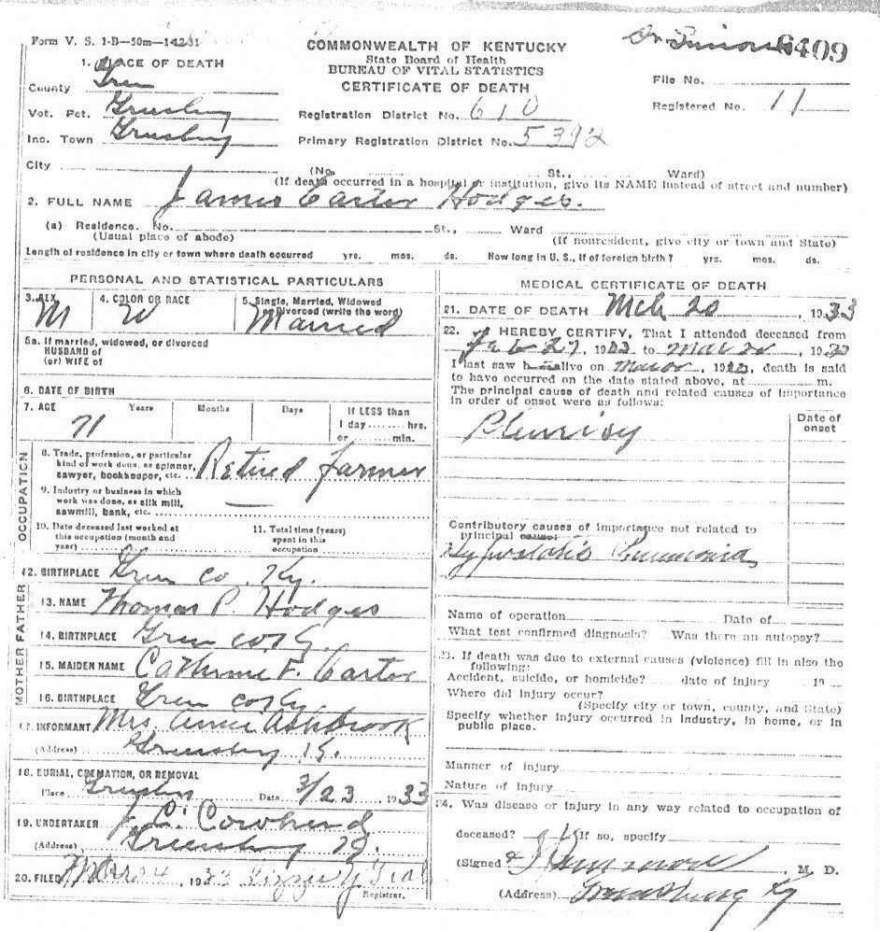 Form V. S. 1-B—50m—1-12-31
6409
1. PLACE OF DEATH
COMMONWEALTH OF KENTUCKY
State Board of Health
BUREAU OF VITAL STATISTICS
CERTIFICATE OF DEATH
County Green
File No.
Vot. Pct. Greensburg
Registration District No. 610
Registered No. 11
Inc. Town Greensburg
Primary Registration District No. 5392
City (No. St., Ward)
(If death occurred in a hospital or institution, give its NAME instead of street and number)
2. FULL NAME James Carter Hodges.
(a) Residence. No. St., Ward
(Usual place of abode) (If nonresident, give city or town and State)
Length of residence in city or town where death occurred yrs. mos. ds. How long in U. S., if of foreign birth? yrs. mos. ds.
PERSONAL AND STATISTICAL PARTICULARS
3. SEX M
4. COLOR OR RACE W
5. Single, Married, Widowed
or Divorced (write the word)
Married
5a. If married, widowed, or divorced
HUSBAND of
(or) WIFE of
6. DATE OF BIRTH
7. AGE Years Months Days If LESS than
71
1 day hrs.
or min.
OCCUPATION
8. Trade, profession, or particular
kind of work done, as spinner,
sawyer, bookkeeper, etc. Retired farmer
9. Industry or business in which
work was done, as silk mill,
sawmill, bank, etc. —
10. Date deceased last worked at
this occupation (month and
year)
11. Total time (years)
spent in this
occupation
12. BIRTHPLACE Green Co. Ky.
FATHER
13. NAME Thomas P. Hodges
14. BIRTHPLACE Green Co Ky.
MOTHER
15. MAIDEN NAME Catherine F. Carter
16. BIRTHPLACE Green Co Ky
17. INFORMANT Mrs. Annie Ashbrook
(Address) Greensburg Ky.
18. BURIAL, CREMATION, OR REMOVAL
Place Greensburg Date 3/23 1933
19. UNDERTAKER J. C. Cowherd
(Address) Greensburg Ky.
20. FILED 1933
Registrar.
MEDICAL CERTIFICATE OF DEATH
21. DATE OF DEATH Mch 20, 1933
22. I HEREBY CERTIFY, That I attended deceased from
Feb 27, 1933 to Mar 20, 1933
I last saw h alive on Mar 20, 1933, death is said
to have occurred on the date stated above, at m.
The principal cause of death and related causes of importance
in order of onset were as follows:
Date of
onset
Pleurisy
Contributory causes of importance not related to
principal cause:
Hypostatic Pneumonia
Name of operation Date of
What test confirmed diagnosis? Was there an autopsy?
23. If death was due to external causes (violence) fill in also the
following:
Accident, suicide, or homicide? date of injury 19
Where did injury occur?
(Specify city or town, county, and State)
Specify whether injury occurred in industry, in home, or in
public place.
Manner of injury
Nature of injury
24. Was disease or injury in any way related to occupation of
deceased? If so, specify
(Signed) M. D.
(Address) Greensburg Ky